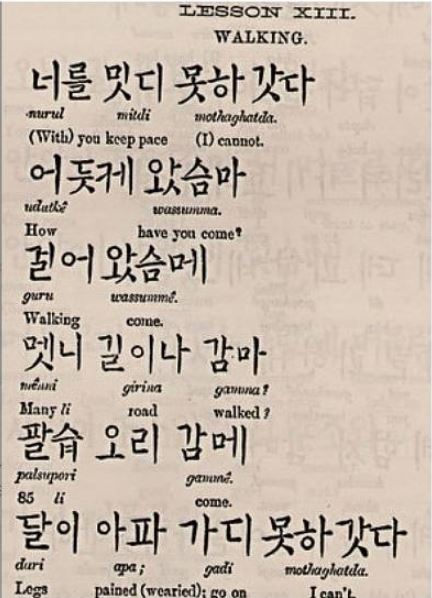 LESSON XIII.
WALKING.
너를 밋디 못하 갓다
nurul mitdi mothaghatda.
(With) you keep pace (I) cannot.
어듯케 왔슴마
udutkê wassumma.
How have you come?
걸어 왔슴메
guru wassummê.
Walking come.
멧니 길이나 감마
mênni girina gamma?
Many li road walked?
팔습 오리 감메
palsupori gammê.
85 li come.
달이 아파 가디 못하 갓다
dari apa; gadi mothaghatda.
Legs pained (wearied); go on I can't.